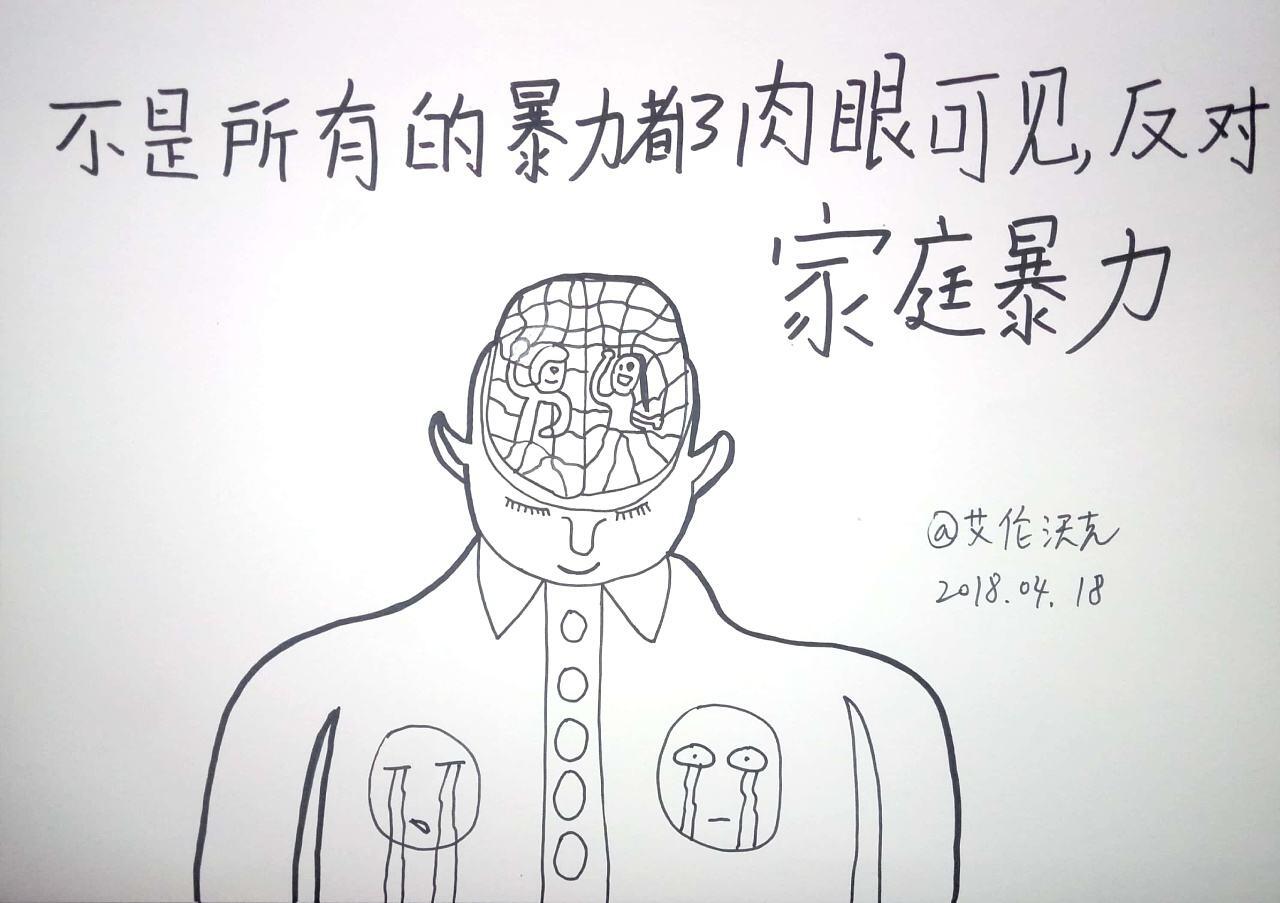 不是所有的暴力都肉眼可见,反对
家庭暴力
@艾伦沃克
2018.04.18